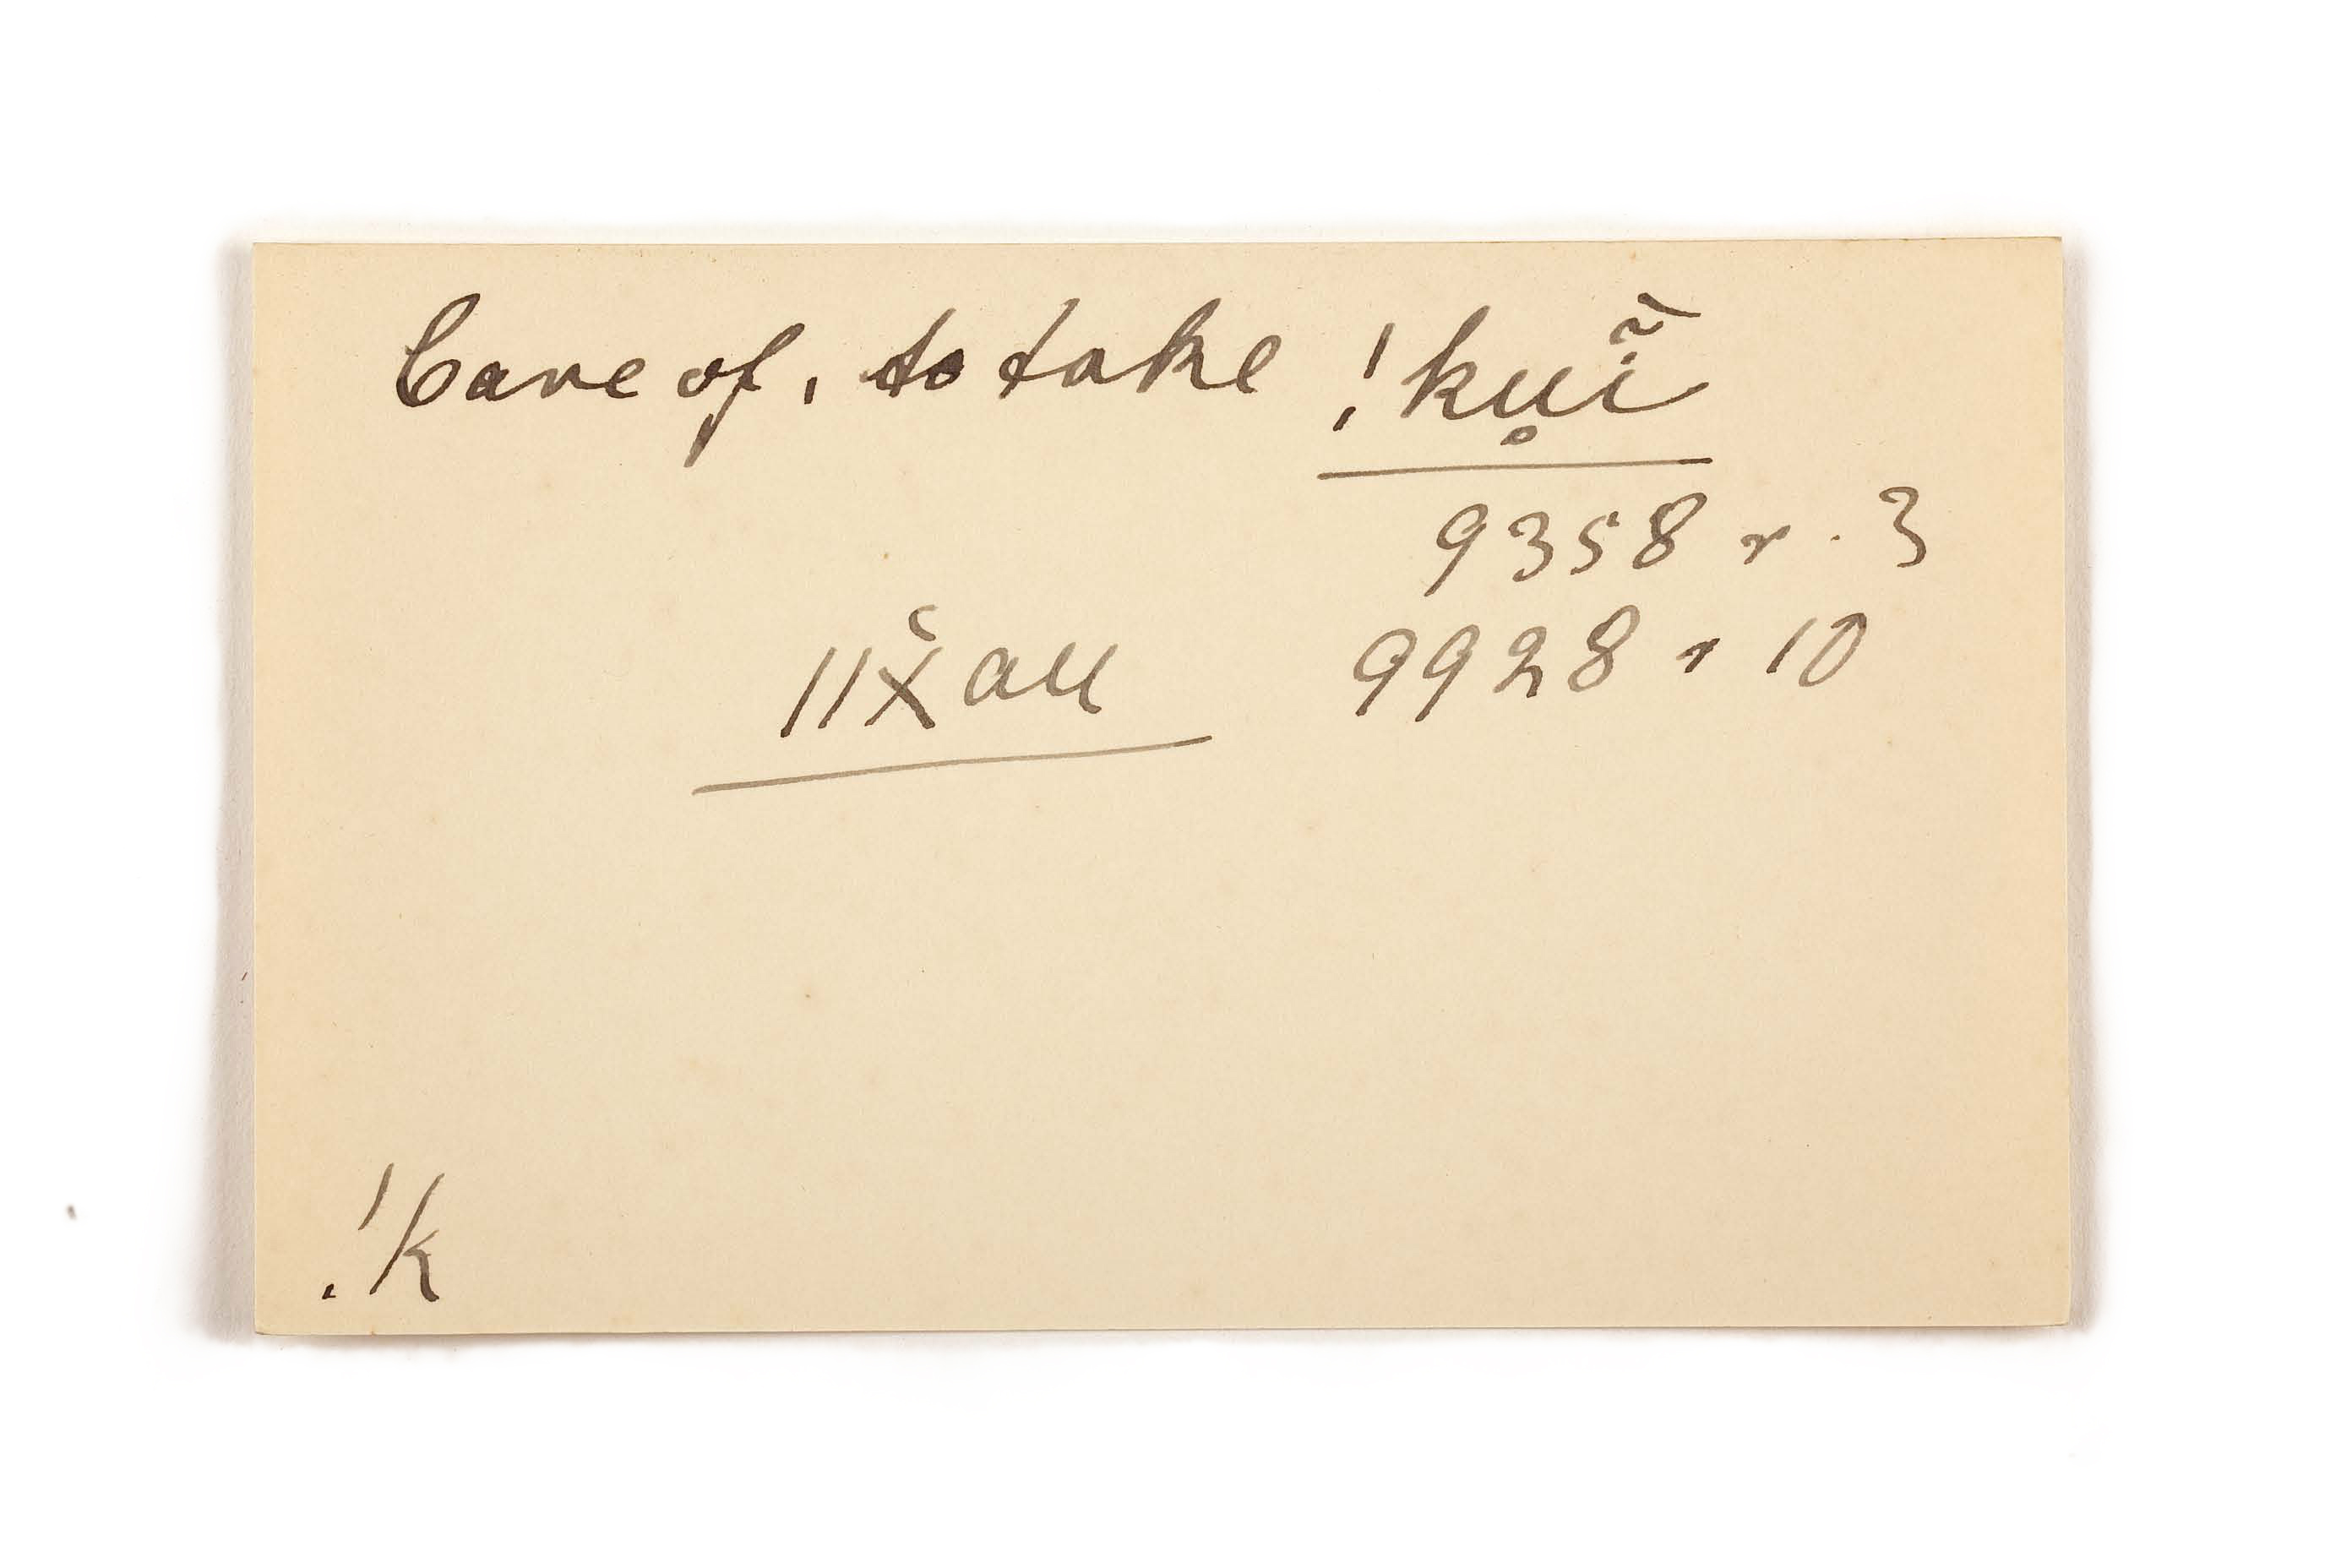 Care of, to take !ku̥ĩ
9358 r. 3
ǁx̆au 9928 r 10
!k